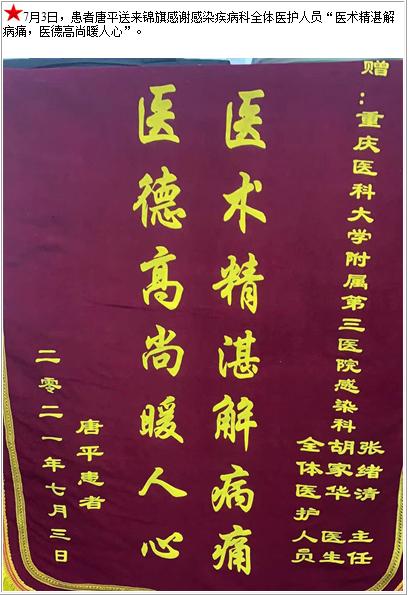 ★7月3日，患者唐平送来锦旗感谢感染疾病科全体医护人员“医术精湛解
病痛，医德高尚暖人心”。
赠：重庆医科大学附属第三医院感染科
张绪清 主任
胡家华 医生
全体医护人员
医术精湛解病痛
医德高尚暖人心
唐平患者
二零二一年七月三日